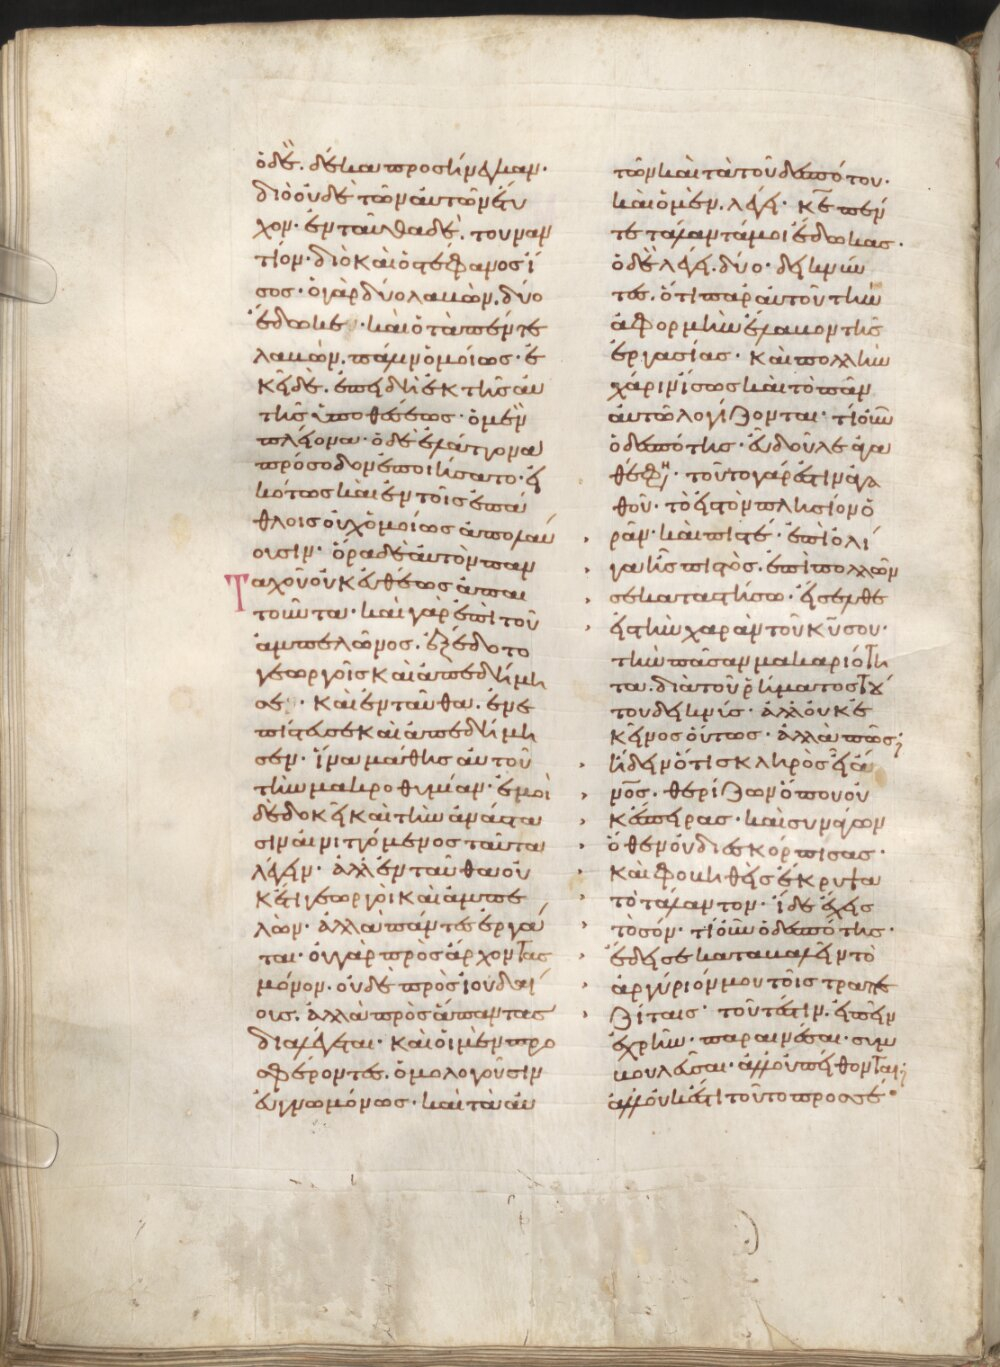 ὁ δὲ. δέκα προσήνεγκαν·
διὸ οὐδὲ τῶν αὐτῶν ἔτυ
χον· ἐνταῦθα δὲ. τουναν
τίον· διὸ καὶ ὁ στέφανος ἴ
σος· ὁ γὰρ δύο λαβὼν. δύο
ἔδωκε· καὶ ὁ τὰ πέντε
λαβὼν. πάλιν ὁμοίως· ἐ
κεῖ δὲ. ἐπειδὴ ἐκ τῆς αὐ
τῆς ὑποθέσεως· ὁ μὲν
πλείονα· ὁ δὲ ἐλάττονα
πρόσοδον ἐποιήσατο· εἰ
κότως καὶ ἐν τοῖς ἐπά
θλοις οὐχ ὁμοίως ἀπολαύ
ουσιν· ὅρα δὲ αὐτὸν παν
Ταχοῦ οὐκ εὐθέως ἀπαι
τοῦντα· καὶ γὰρ ἐπὶ τοῦ
ἀμπελῶνος. ἐξέδοτο
γεωργοῖς καὶ ἀπεδήμη
σε· καὶ ἐνταῦθα. ἐνε
πίστευσε καὶ ἀπεδήμη
σεν· ἵνα μάθῃς αὐτοῦ
τὴν μακροθυμίαν· ἐμοὶ
δὲ δοκεῖ καὶ τὴν ἀνάστα
σιν αἰνιττόμενος ταῦτα
λέγειν· ἀλλ' ἐνταῦθα οὐ
κέτι γεωργοὶ καὶ ἀμπε
λὼν· ἀλλὰ πάντες ἐργά
ται· οὐ γὰρ πρὸς ἄρχοντας
μόνον. οὐδὲ πρὸς ἰουδαί
ους. ἀλλὰ πρὸς ἅπαντας
διαλέγεται· καὶ οἱ μὲν προ
σφέροντες. ὁμολογοῦσιν
εὐγνωμόνως· καὶ τὰ αὐ
τῶν καὶ τὰ τοῦ δεσπότου·
καὶ ὁ μὲν. λέγει· κε πέν
τε τάλαντά μοι ἔδωκας·
ὁ δὲ λέγει. δύο· δεικνύν
τες. ὅτι παρ' αὐτοῦ τὴν
ἀφορμὴν ἔλαβον τῆς
ἐργασίας· καὶ πολλὴν
χάριν ἴσως καὶ τὸ πᾶν
αὐτῷ λογίζονται· τί οὖν
ὁ δεσπότης· εὖ δοῦλε ἀγα
θέ φη· τοῦτο γάρ ἐστιν ἀγα
θοῦ· τὸ εἰς τὸν πλησίον ὁ
ρᾶν· καὶ πιστέ· ἐπὶ ὀλί
γα ἦς πιστὸς. ἐπὶ πολλῶν
σε καταστήσω· εἴσελθε
εἰς τὴν χαρὰν τοῦ κυ σου·
τὴν πᾶσαν μακαριότη
τα. διὰ τοῦ ῥήματος
τού δεικνύς· ἀλλ' οὐκ ἐ
κεῖνος οὕτως· ἀλλὰ πῶς;
ᾔδειν ὅτι σκληρὸς εἶ ἄ
νος. θερίζων ὅπου οὐ
κ ἔσπειρας· καὶ συνάγων
ὅθεν οὐ διεσκόρπισας·
καὶ φοβηθεὶς ἔκρυψα
τὸ τάλαντον· ἴδε ἔχεις
τὸ σόν· τί οὖν ὁ δεσπότης·
ἔδει σε καταβαλεῖν τὸ
ἀργύριόν μου τοῖς τραπε
ζίταις· τουτέστιν. εἰπεῖν
ἐχρῆν· παραινέσαι· συμ
βουλεῦσαι· ἀλλ' οὐ πείθονται;
ἀλλ' οὐκέτι τοῦτο πρὸς σέ·